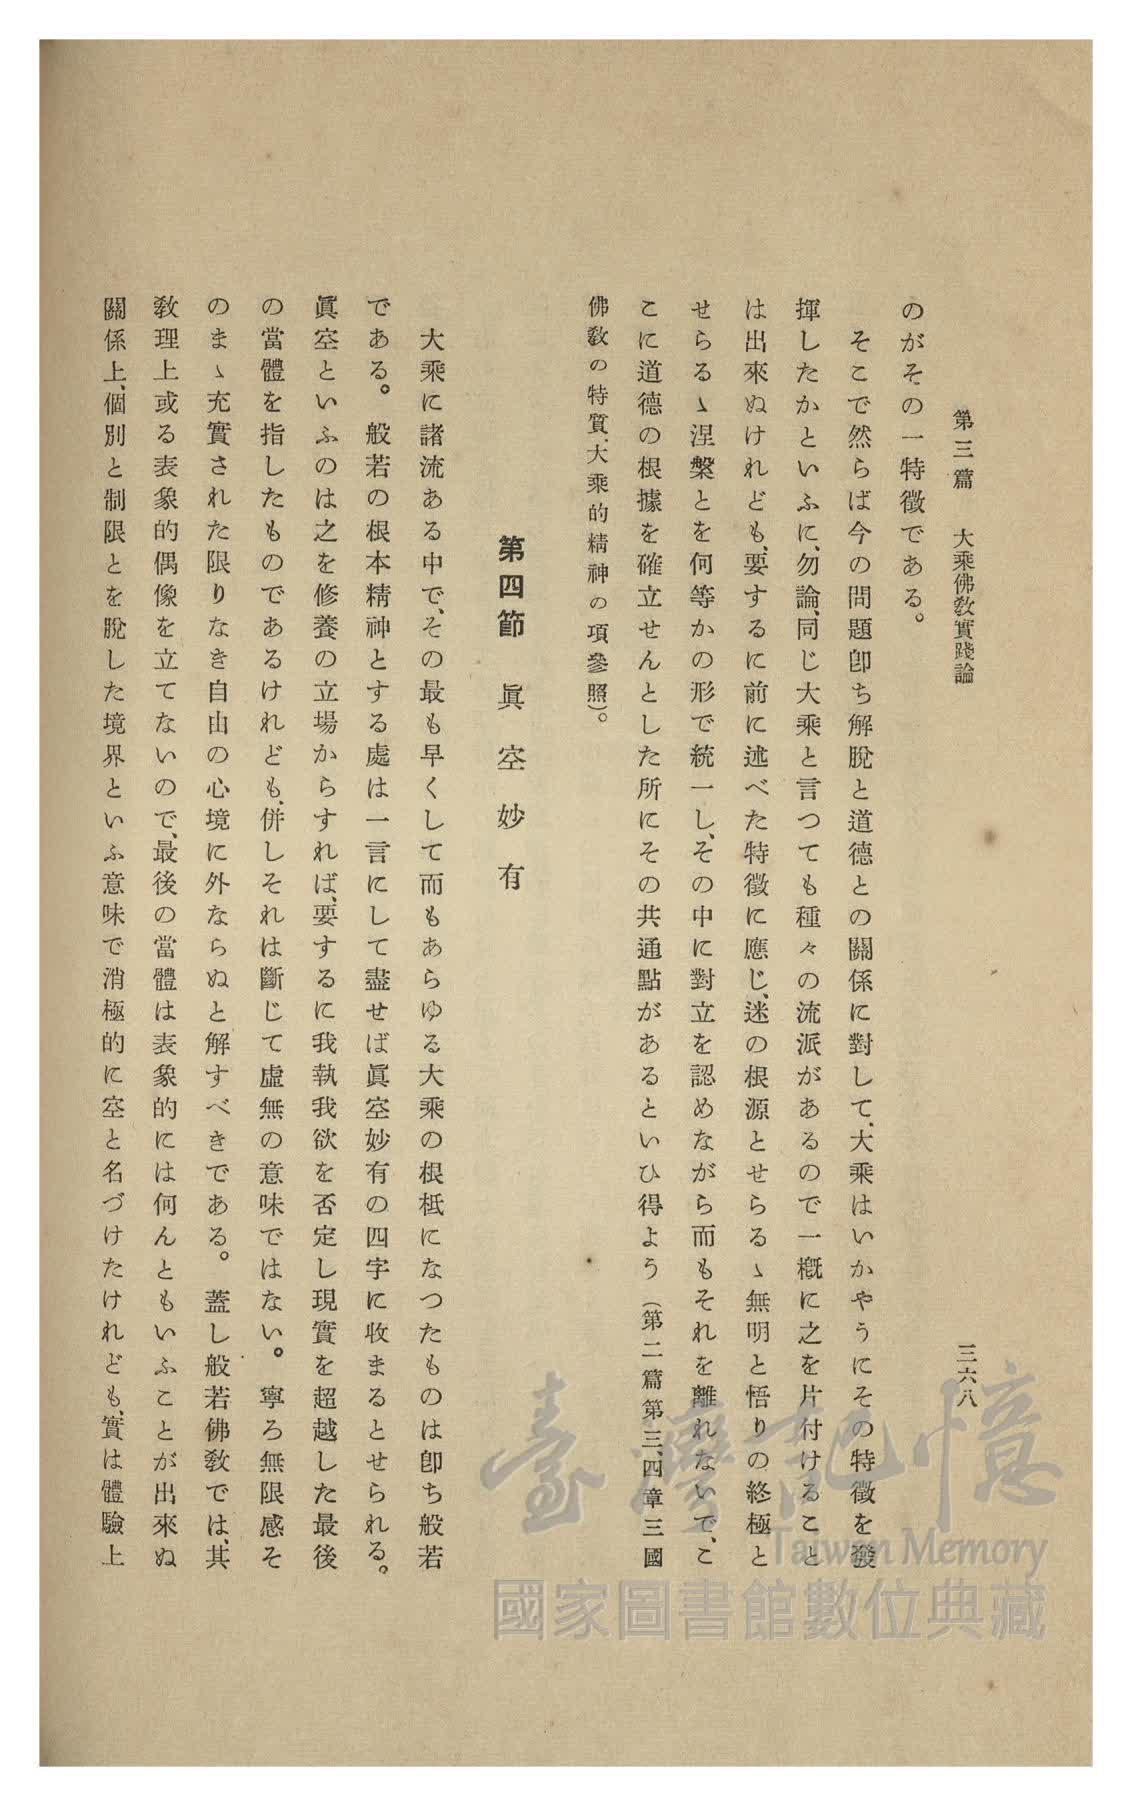 第三篇　大乘佛教實踐論
三六八
のがその一特徵である。
そこで然らば今の問題卽ち解脫と道德との關係に對して、大乘はいかやうにその特徵を發
揮したかといふに、勿論、同じ大乘と言つても種々の流派があるので一槪に之を片付けること
は出來ぬけれども、要するに前に述べた特徵に應じ、迷の根源とせらるゝ無明と悟りの終極と
せらるゝ涅槃とを何等かの形で統一し、その中に對立を認めながら而もそれを離れないで、こ
こに道德の根據を確立せんとした所にその共通點があるといひ得よう（第二篇第三、四章三國
佛敎の特質、大乘的精神の項參照）。
第四節　眞空妙有
大乘に諸流ある中で、その最も早くして而もあらゆる大乘の根柢になつたものは卽ち般若
である。般若の根本精神とする處は一言にして盡せば眞空妙有の四字に收まるとせられる。
眞空といふのは之を修養の立場からすれば、要するに我執我欲を否定し現實を超越した最後
の當體を指したものであるけれども、併しそれは斷じて虛無の意味ではない。寧ろ無限感そ
のまゝ充實された限りなき自由の心境に外ならぬと解すべきである。蓋し般若佛敎では、其
敎理上或る表象的偶像を立てないので、最後の當體は表象的には何んともいふことが出來ぬ
關係上、個別と制限とを脫した境界といふ意味で消極的に空と名づけたけれども、實は體驗上
臺灣記憶
Taiwan Memory
國家圖書館數位典藏